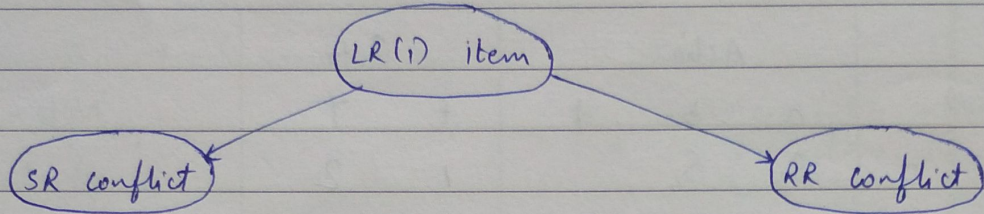 LR(1) item
SR conflict
RR conflict